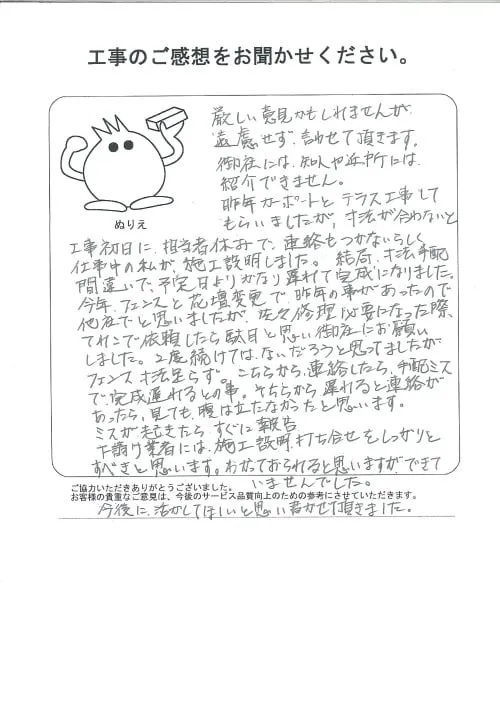 工事のご感想をお聞かせください。
厳しい意見かもしれませんが
遠慮せず、言わせて頂きます。
御社には、知人や近所には、
紹介できません。
昨年カーポートとテラス工事して
もらいましたが、寸法が合わないと
ぬりえ
工事初日に、担当者休みで、連絡もつかないらしく
仕事中の私が、施工説明しました。結局、寸法、手配
間違いで、予定日よりかなり遅れて完成になりました。
今年、フェンスと花壇変更で、昨年の事があったので
他社でと思いましたが、修理必要になった際、
依頼したら駄目と思い御社にお願い
しました。2度続けては、ないだろうと思ってましたが
フェンス寸法足らず。こちらから、連絡したら、手配ミス
で、完成遅れるとの事。そちらから遅れると連絡が
あったら、見ても、腹は立たなかったと思います。
ミスが起きたら、すぐに報告
下請け業者には、施工説明、打ち合せをしっかりと
すべきと思います。わかっておられると思いますが、できて
いませんでした。
ご協力いただきありがとうございました。
お客様の貴重なご意見は、今後のサービス品質向上のための参考にさせていただきます。
今後に、活かしてほしいと思い書かせて頂きました。